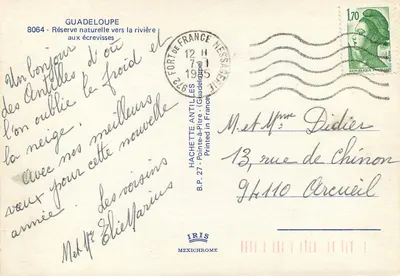 GUADELOUPE
8064 - Réserve naturelle vers la rivière
aux écrevisses
Un bonjour
des Antilles d'où
l'on oublie le froid et
la neige.
Avec nos meilleurs
vœux pour cette nouvelle
année.
Les voisins
M et Me Elie Marius
HACHETTE ANTILLES
B.P. 27 - Pointe-à-Pitre - (Guadeloupe)
Printed in France
972 FORT DE FRANCE MESSAGERIE
12 H
7-1
1985
1,70
M et Mme Didier
13, rue de Chinon
94110 Arcueil
IRIS
MEXICHROME